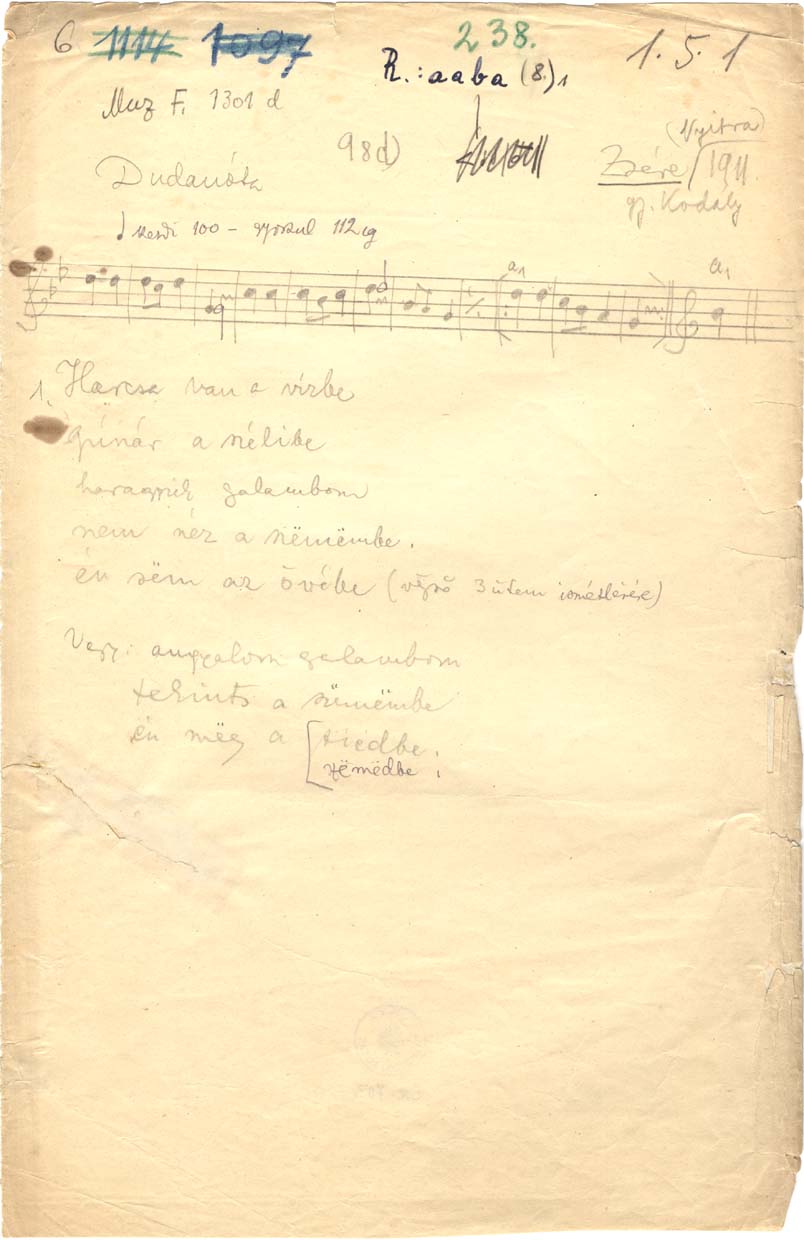 6 1114 1097 238. 1.5.1
R.: aaba (8.)1
Muz F. 1301 d
98d) (Nyitra)
Dudanóta Zsére / 1911.
gj. Kodály
kezdi 100 - gyorsul 112 ig
a1 a1
1. Harcsa van a vízbe
gúnár a szélibe
haragszik galambom
nem néz a szëmëmbe.
én sëm az övébe (végső 3 ütem ismétlésére)
Vagy: angyalom galambom
tekints a szëmëmbe
én mëg a tiedbe.
szëmëdbe.